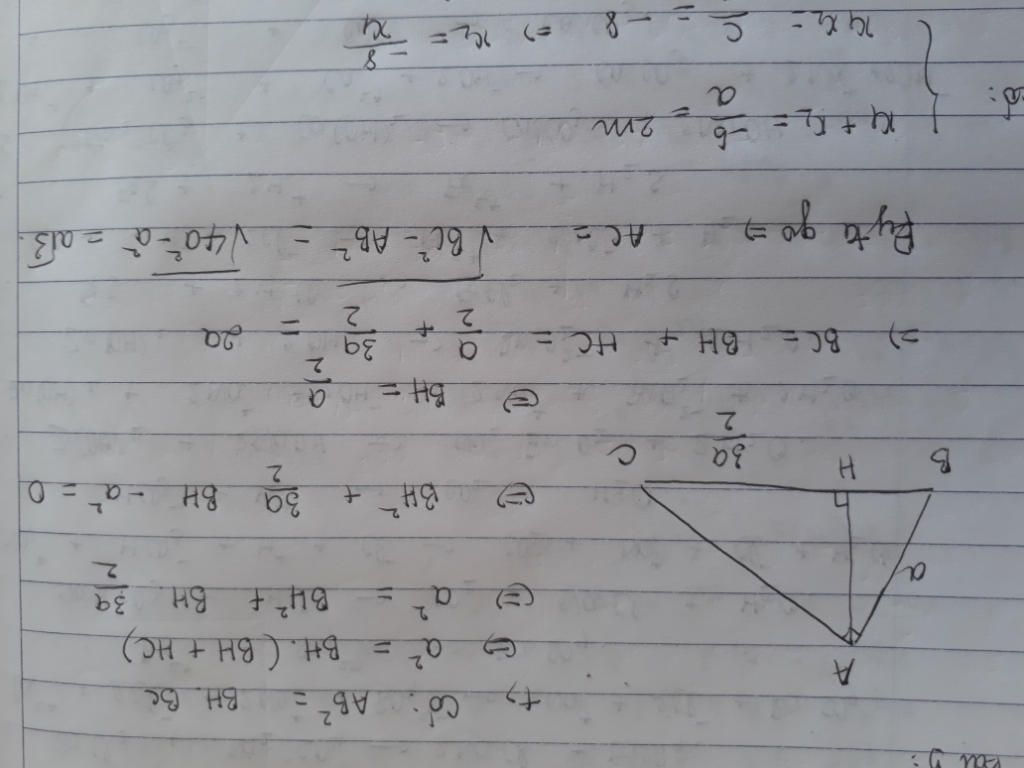 Bài 1:
+, Có: AB² = BH. BC
⇔ a² = BH. (BH + HC)
⇔ a² = BH² + BH 3a/2
⇔ BH² + 3a/2 BH - a² = 0
A
a
B H C
3a/2
⇔ BH = a/2
⇒ BC = BH + HC = a/2 + 3a/2 = 2a
Pytago ⇒ AC = √(BC² - AB²) = √(4a² - a²) = a√3.
x₁ + x₂ = -b/a = 2m
x₁x₂ = c = -8 ⇒ x₂ = -8/x₁